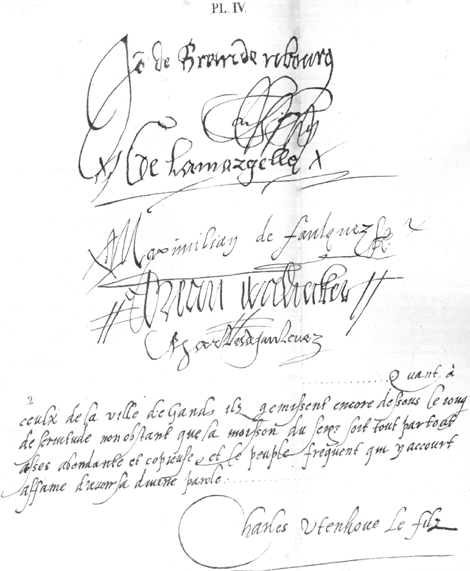 PL. IV.
Jo de Brandenbourg
De Lamazgelle
Maximilian de faulquez
Jean
Quant à
ceulx de la ville de Gand, ilz gemissent encore dessous le ioug
de servitude non obstant que la moisson du segr soit tout partout
asses abondante et copieuse, et le peuple frequent qui y accourt
affame d'avoir sa divine parole
Charles Utenhove Le filz